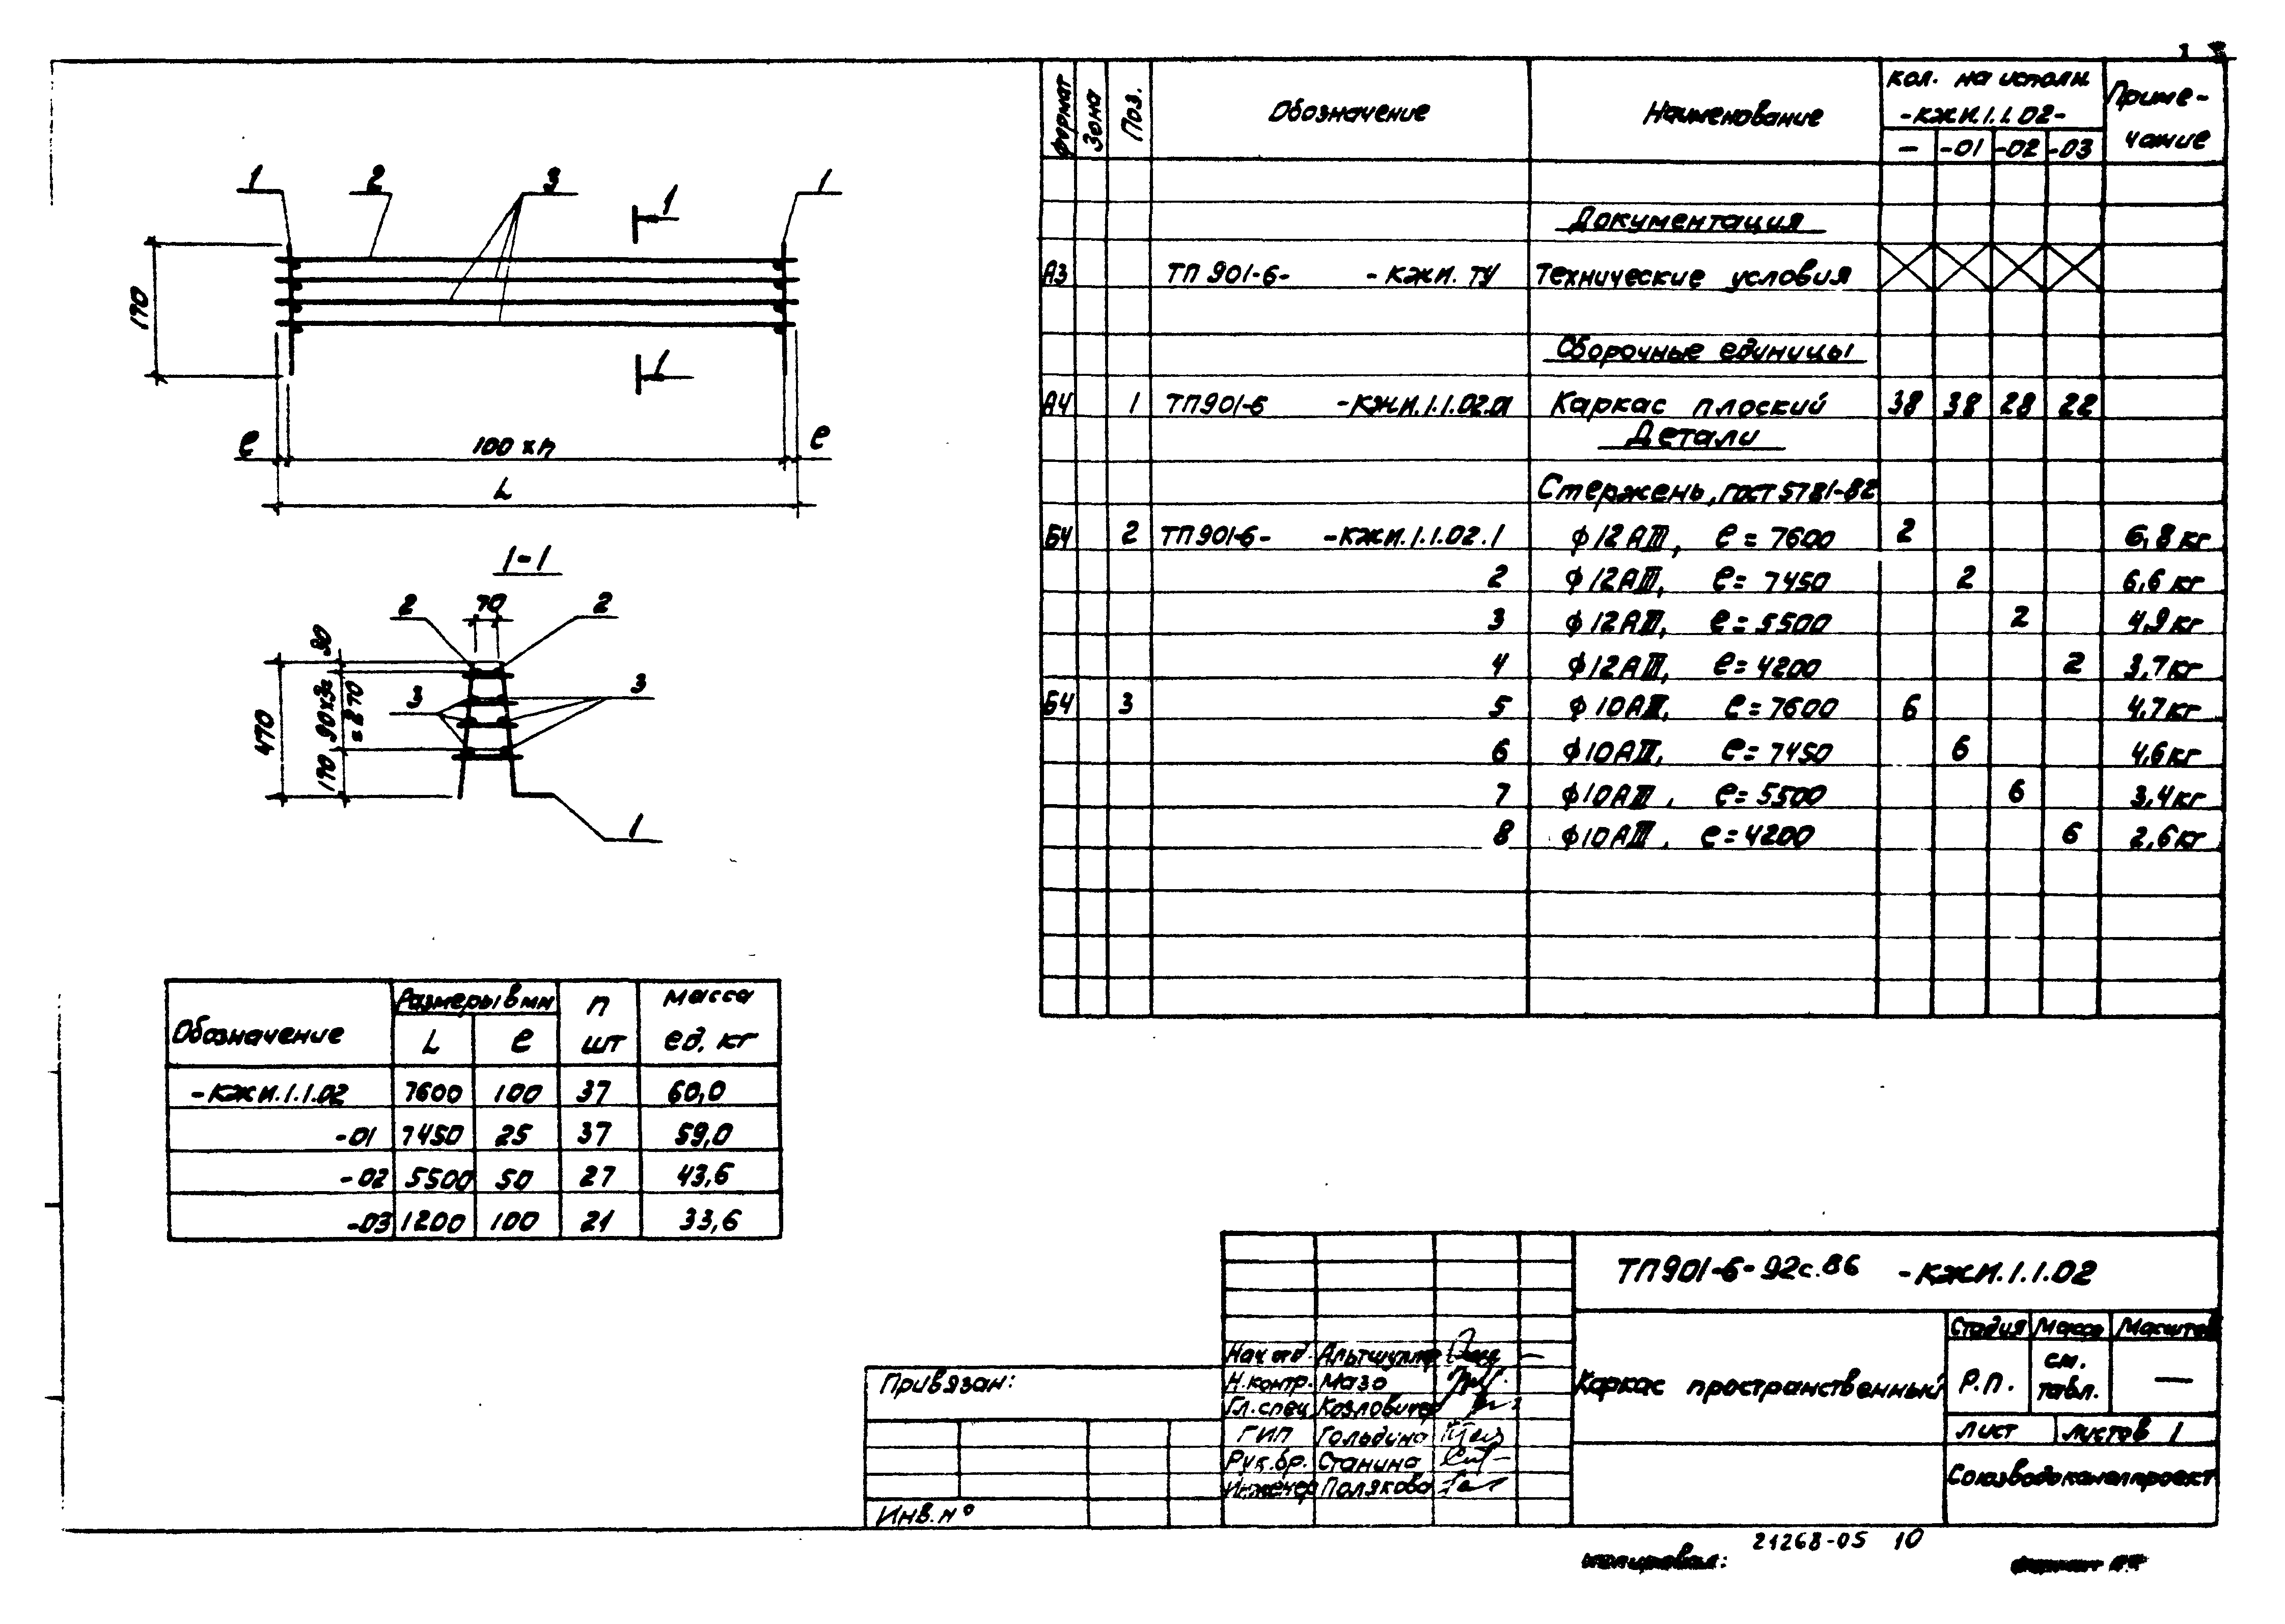 1 2 3 1
1
170
1
е 100 х п е
L
1-1
2 70 2
30
3 3
470
170 90х3=
=270
1
Обозначение Размеры в мм п масса
L е шт ед. кг
-КЖИ.1.1.02 7600 100 37 60,0
-01 7450 25 37 59,0
-02 5500 50 27 43,6
-03 1200 100 21 33,6
формат Зона Поз. Обозначение Наименование кол. на исполн. Приме-
-КЖИ.1.1.02- чание
- -01 -02 -03
Документация
А3 ТП 901-6- -КЖИ.ТУ Технические условия
Сборочные единицы
А4 1 ТП901-6 -КЖИ.1.1.02.01 Каркас плоский 38 38 28 22
Детали
Стержень, ГОСТ 5781-82
Б4 2 ТП901-6- -КЖИ.1.1.02.1 ф12АIII, е=7600 2 6,8кг
2 ф12АIII, е=7450 2 6,6кг
3 ф12АIII, е=5500 2 4,9кг
4 ф12АIII, е=4200 2 3,7кг
Б4 3 5 ф10АIII, е=7600 6 4,7кг
6 ф10АIII, е=7450 6 4,6кг
7 ф10АIII, е=5500 6 3,4кг
8 ф10АIII, е=4200 6 2,6кг
ТП901-6-92с.86 -КЖИ.1.1.02
Нач.отд. Альтшуллер
Н.контр. Мазо
Гл.спец Козлович
ГИП Гольдина
Рук.бр. Станина
Инженер Полякова
Каркас пространственный
Стадия Масса Масштаб
Р.П. см. —
табл.
Лист Листов 1
Союзводоканалпроект
Привязан:
Инв.№
21268-05 10
копировал: